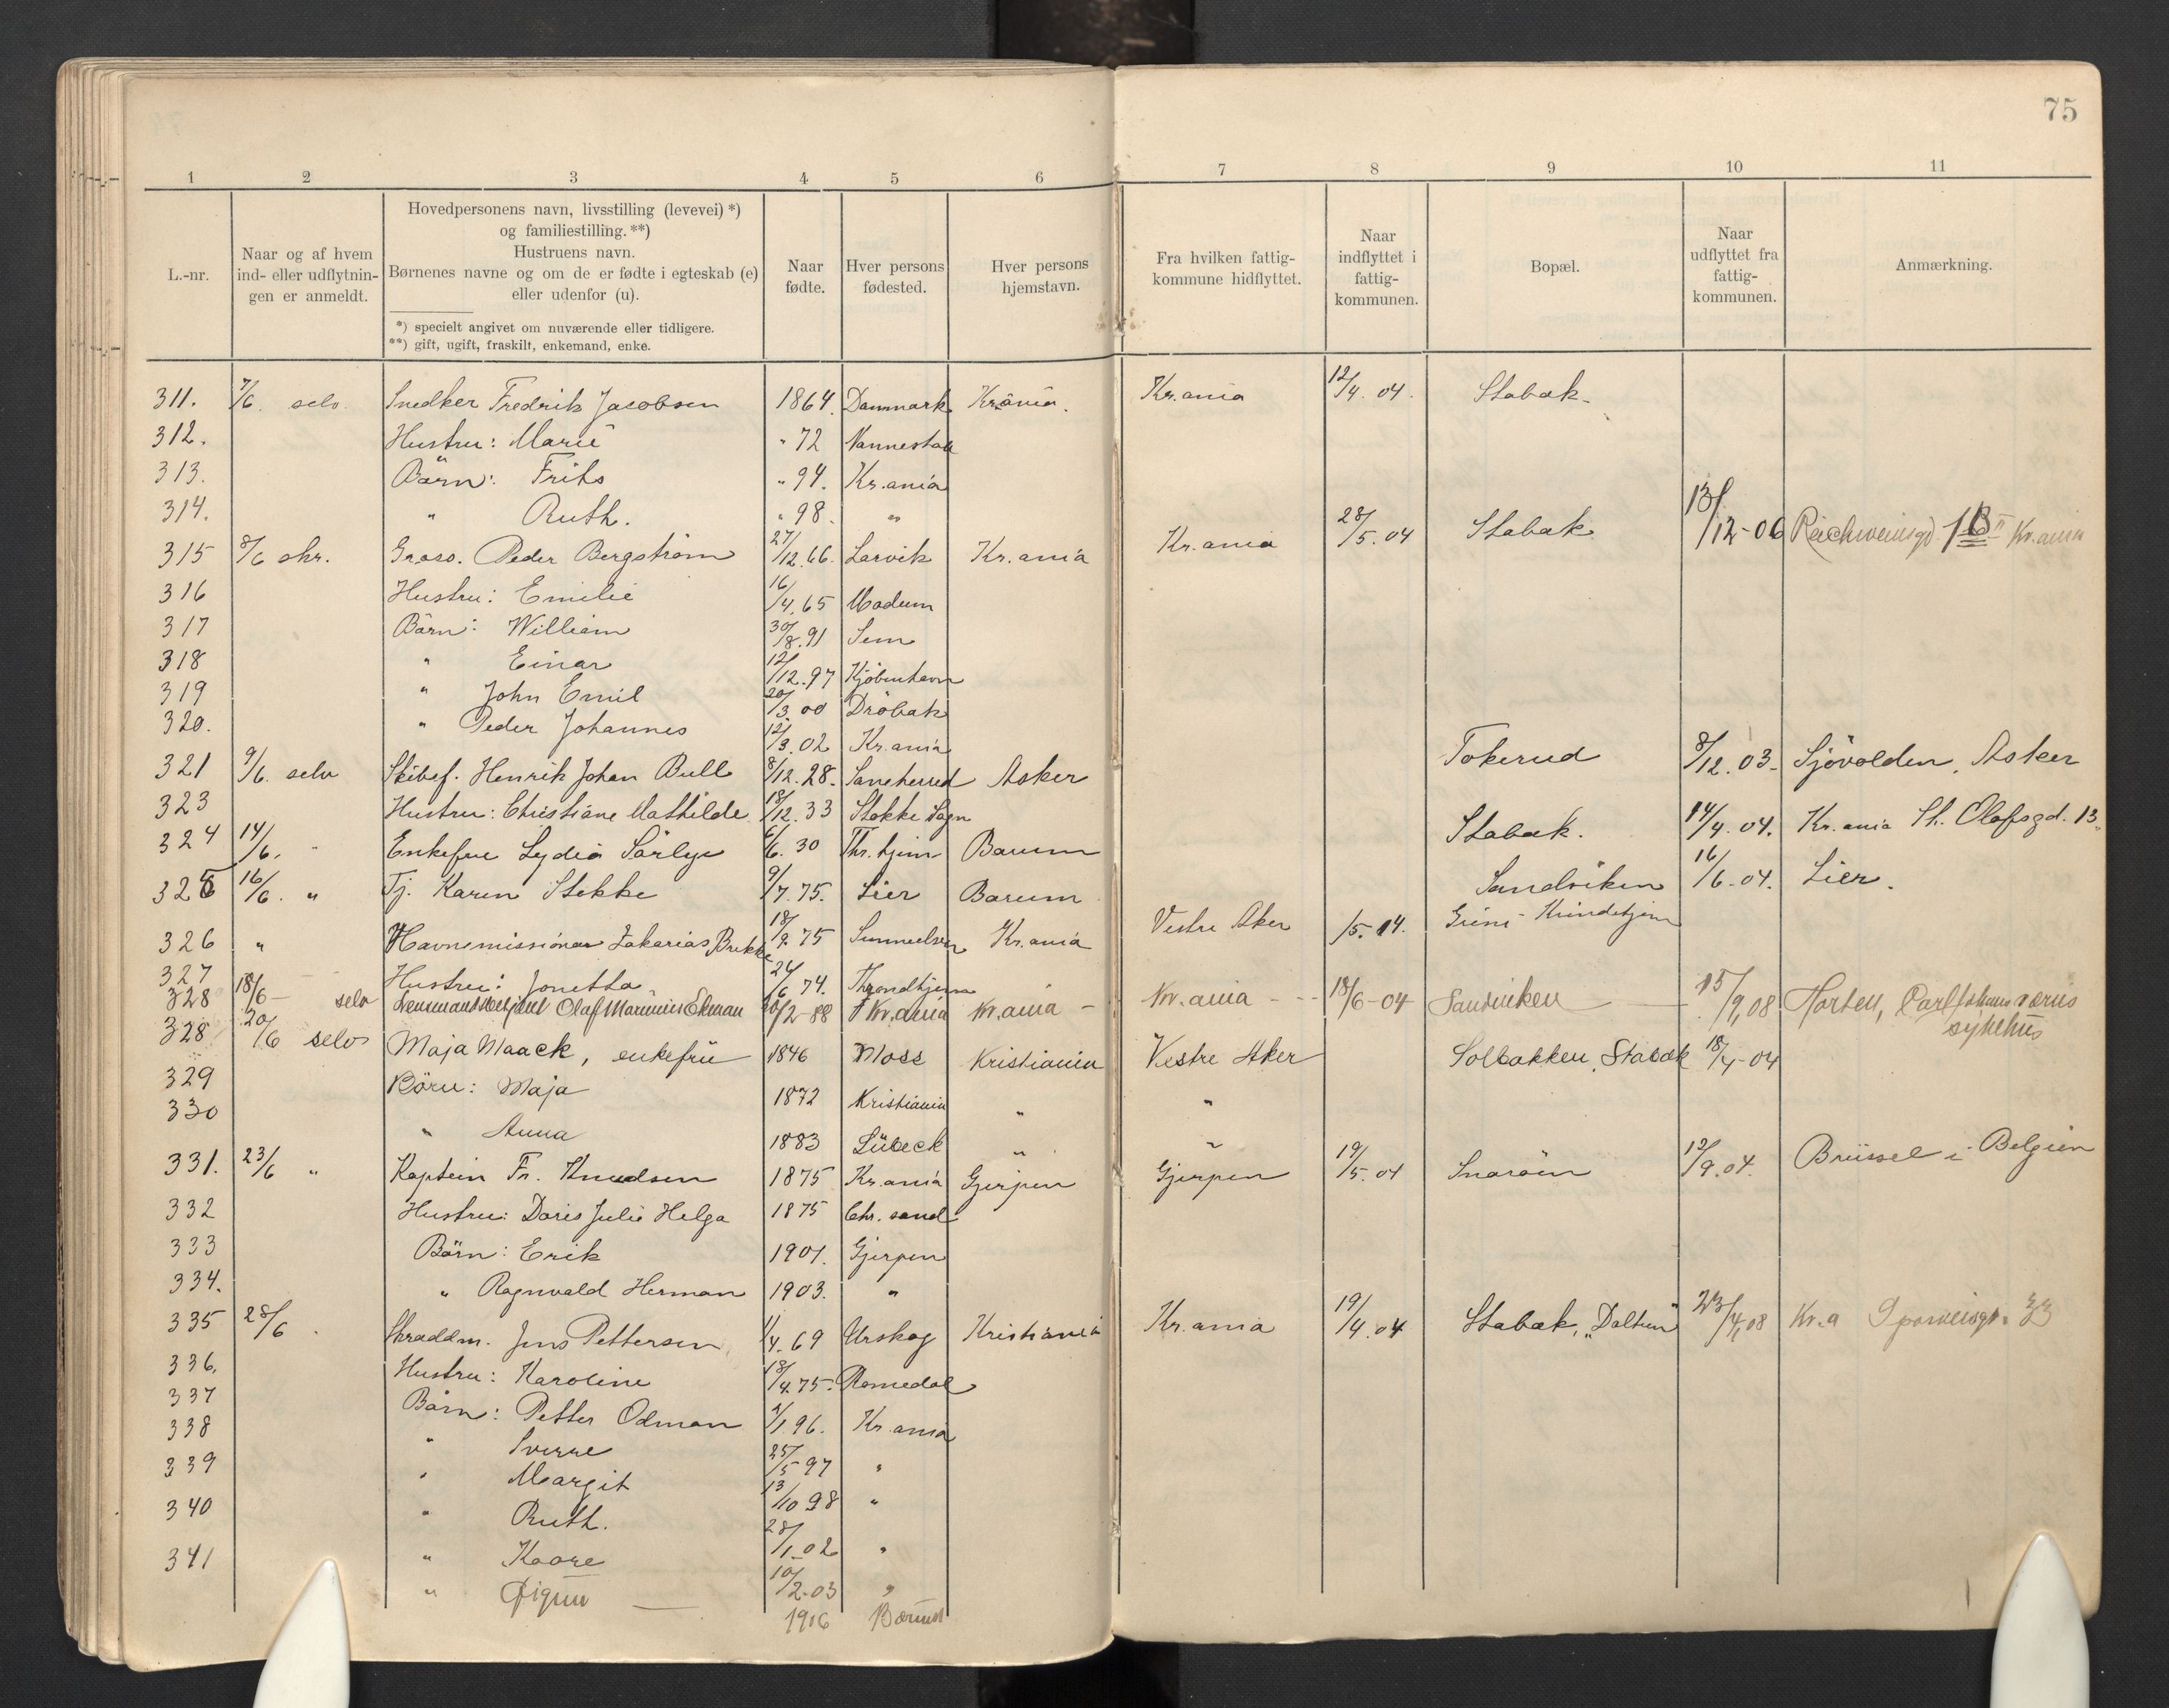 75
1 2 3 4 5 6 7 8 9 10 11
L.-nr.
Naar og af hvem
ind- eller udflytnin-
gen er anmeldt.
Hovedpersonens navn, livsstilling (levevei) *)
og familiestilling. **)
Hustruens navn.
Børnenes navne og om de er fødte i egteskab (e)
eller udenfor (u).
*) specielt angivet om nuværende eller tidligere.
**) gift, ugift, fraskilt, enkemand, enke.
Naar
fødte.
Hver persons
fødested.
Hver persons
hjemstavn.
Fra hvilken fattig-
kommune hidflyttet.
Naar
indflyttet i
fattig-
kommunen.
Bopæl.
Naar
udflyttet fra
fattig-
kommunen.
Anmærkning.
311. 7/6. selv Snedker Fredrik Jacobsen 1864. Danmark Kr.ania. Kr.ania 12/4. 04. Stabæk.
312. Hustru: Marie " 72 Nannestad
313. Børn: Frits " 94. Kr.ania
314. " Ruth. " 98. "
315 8/6 skr. Gross. Peder Bergstrøm 27/12.66. Larvik Kr.ania Kr.ania 28/5.04 Stabæk 13/12-06 Reichweinsgd. 1 B II Kr.ania
316 Hustru: Emilie 16/4.65 Modum
317 Børn: William 30/8.91 Sem
318 " Einar 12/12.97 Kjøbenhavn
319 " John Emil 20/3.00 Drøbak
320. " Peder Johannes 12/3.02 Kr.ania
321 9/6. selv Skibsf. Henrik Johan Bull 8/12.28. Saneherred Asker Tokerud 8/12.03. Sjøvolden, Asker
323 Hustru: Christiane Mathilde 18/12.33 Stokke Sogn
324 14/6. " Enkefru Lydia Sørlye 6/6.30 Thr.hjem Bærum Stabæk. 14/4.04. Kr.ania St. Olafsgd. 13.
325 16/6. " Tj. Karen Stekke 9/7.75. Lier Bærum Sandviken 16/6-04. Lier.
326 " Havnemissionær Zakarias Brekke 18/9.75 Sunnelven Kr.ania Vestre Aker /5.04. Grini - Kvindehjem
327 Hustru: Jonetta 24/6 74. Throndhjem
328 18/6 - selv Lensmandsbetjent Olaf Marinius Ekman 20/2-88 Kr.ania Kr.ania - Kr.ania - - 18/6-04 Sandviken 15/9,08 Horten, Carl Johans værns
sykehus
328 20/6 selv Maja Maack, enkefru 1846 Moss Kristiania Vestre Aker Solbakken, Stabæk 18/4-04
329 Børn: Maja 1872 Kristiania " "
330 " Anna 1883 Lübeck " "
331. 23/6 " Kaptein Fr. Knudsen 1875 Kr.ania Gjerpen Gjerpen 19/5.04 Snarøen 12/9.04. Brüssel i Belgien
332 Hustru: Doris Julie Helga 1875 Chr.sand
333 Børn: Erik 1901. Gjerpen
334. " Ragnvald Herman 1903. "
335 28/6 Skraddm. Jens Pettersen 1/4.69 Urskog Kristiania Kr.ania 19/4.04 Stabæk, "Daltun" 23/4,08 Kr.a Sporveisgt. 33
336. Hustru: Karoline 18/4.75. Romedal
337 Børn: Petter Odman 1/1.96. Kr.ania
338 " Sverre 25/5 97 "
339 " Margit 13/10 98 "
340 " Ruth. 28/1-02 "
341 " Kaare 10/2-03 "
" Sigrun 1906 Bærum